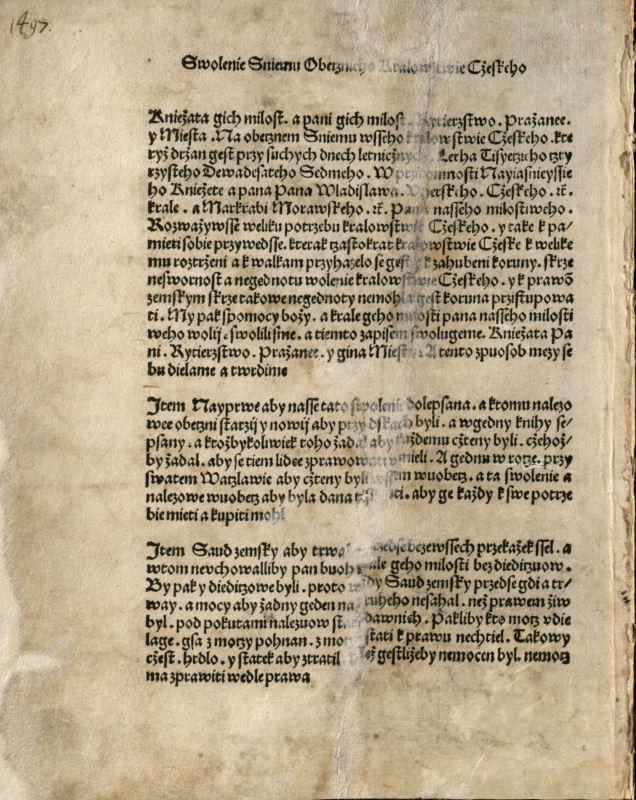 1497.
Swolenie Sniemu Obeczn Cżeſkeho
Kniežata gich miloſt. a pani gich miloſ Rytierzſtwo. Pražanee.
y Mieſta. Na obecznem Sniemu wſſeho kralowſtwie Cżeſkeho. kte
ryž držan geſt przy ſuchych dnech letniczny Letha Tiſycziho cztyr
rzyſteho Dewadeſateho Sedmeho. W Nayiaſnieyſſie
ho Kniežete a pana Pana Wladiſlawa. Cżeſkeho. ꝛč.
krale. a Markrabi Morawſkeho. ꝛč. Pana naſſeho miloſtiweho.
Rozważywſſe weliku potrzebu kralowſtwie Cżeſkeho. y take k pa-
mieti ſobie przywedſſe. kterak czaſtokrat kralowſtwie Cżeſke k welike
mu roztrženi a k walkam przyhazelo ſe geſt y k zahubeni koruny. ſkrze
neſwornoſt a negednotu wolenie kralowſtwie Cżeſkeho. y k prawō
zemſkym ſkrze takowe negednoty nemohla geſt koruna przyſtupowa
ti. My pak ſpomocy božy. a krale geho miloſti pana naſſeho miloſti
weho wolij. ſwolili ſme. a tiemto zapiſem ſwolugeme. Kniežata Pa
ni. Rytierzſtwo. Pražanee. y gina Mieſta. A tento zpuoſob mezy ſe
bu dielame a twrdime
Item Nayprwe aby naſſe tato ſwoleni dolepſana. a ktomu nalezo
wee obeczni ſtarzij y nowij aby przy dſkach byli. a wgedny knihy ſe-
pſany. a ktožbykoliwiek toho žadal aby každemu cżteny byli. cżehož-
by žadal. aby ſe tiem lidee zprawowati mieli. A gednu w rocze. przy
ſwatem Waczlawie aby cżteny byli wſſem wuobecz. a ta ſwolenie a
nalezowe wuobecz aby byla dana ti. aby ge každy k ſwe potrze
bie mieti a kupiti mohl
Item Saud zemſky aby trwal przedſe bezewſſech przekažek ſſel. a
wtom nevchowalliby pan buoh krale geho miloſti bez dieditzuow.
By pak y dieditzowe byli. proto wždy Saud zemſky przedſe gdi a tr-
way. a mocy aby žadny geden na druheho neſahal. než prawem żiw
byl. pod pokutami nalezuow ſtarodawnich. Pakliby kto motz vdie
lage. gſa z motzy pohnan. z mo ſtati k prawu nechtiel. Takowy
cżeſt. hrdlo. y ſtatek aby ztratil Než geſtližeby nemocen byl. nemotz
ma zprawiti wedle prawa